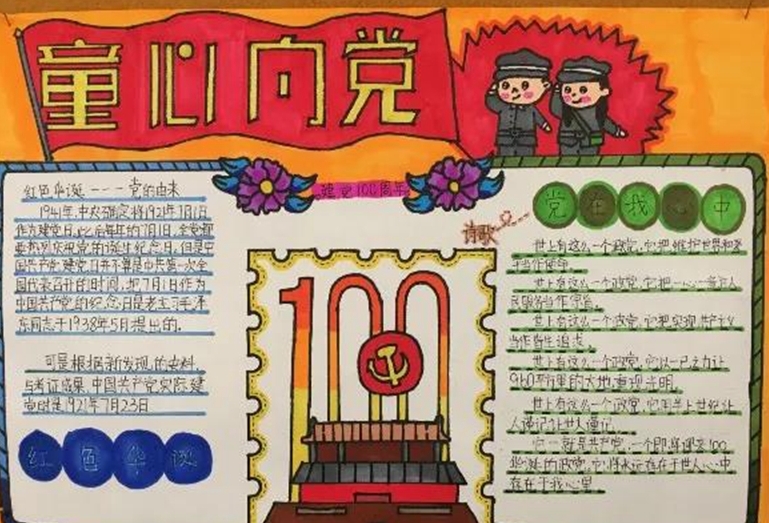 童心向党
建党100周年
红色华诞----党的由来
1941年,中央确定将1921年7月1日
作为建党日,此后每年的7月1日,全党都
要热烈庆祝党的诞生纪念日,但是中
国共产党建党日并不算是中共第一次全
国代表召开的时间,把7月1日作为
中国共产党的纪念日是老主习毛泽
东同志于1938年5月提出的.
可是根据新发现的史料,
与考证成果,中国共产党实际建
党时是1921年7月23日
红色华诞
100
诗歌
党在我心中
世上有这么一个政党,它把维护世界和
当作使命.
世上有这么一个政党,它把一心一意为人
民服务当作宗旨.
世上有这么一个政党,它把实现共产主义
当作毕生追求.
世上有这么一个政党,它以一己之力让
960平行里的大地重现光明.
世上有这么一个政党,它用半上世纪让
人谨记让世人谨记.
它一就是共产党,一个即将迎来100
诞的政党,它将永远存在于世人心中
存在于我心里